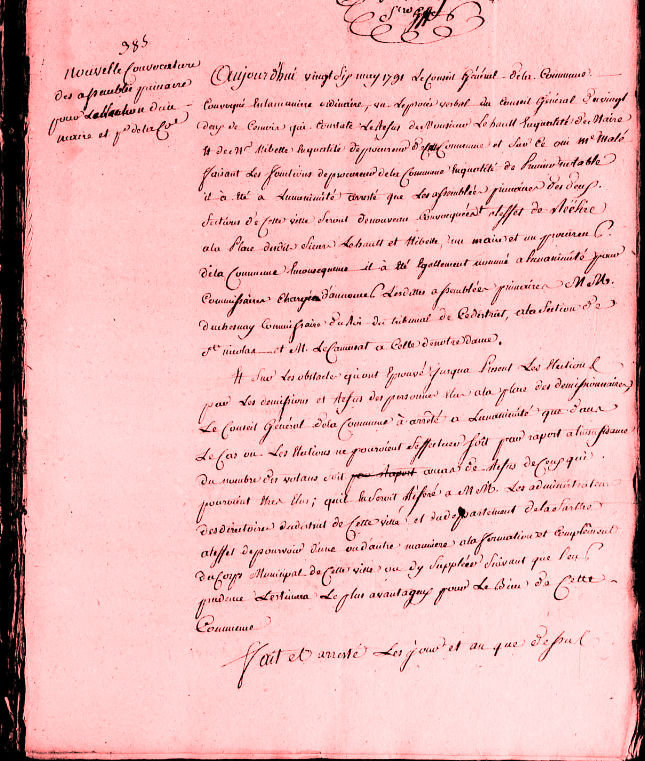 385
Nouvelle Convocature
des assemblée primaire
pour Lellection du
maire et pr. de la Co.e
Aujourd'hui vingt sip may 1791 Le Conseil Général de la Commune
Convoqué En la maniere ordinaire, vu le procès verbal du Conseil Général du vingt
deux de Ce mois qui Constate Le Refus de Monsieur Lehault En qualité de Maire
Et de Mr. Ribette En qualité de procureur de la Commune et Sur Ce oui mr. Malé
faisant Les fonctions de procureur de la Commune En qualité de Premier notable
il a été a Lunanimité arresté que Les assemblée primaire des deux
Sections de Cette ville Seront de nouveau Convoquées a Leffet de Réélire
a la Place desdits Sieurs Lehault et Ribette, un maire et un procureur
de la Commune En consequence il a été Egallement nommé a lunanimité pour
Commissaires Chargés d'annoncer Lesdittes assemblées primaires M. Mrs.
duchesnay Commissaire du Roi du tribunal de Ce district, a la Section de
St. nicolas et M. Le Camusat a Celle de notre Dame.
Et Sur Les obstacle qu'ont Eprouvé jusqua Present Les Elections
par Les demissions et Refus des personne Elus a la place des demissionnaires,
Le Conseil Général de la Commune à arrêté a Lunanimité que dans
Le Cas ou Les Elections ne pouroient S'effectuer soit par raport a linsuffisance
du nombre des votans soit par Raport au cas de Refus de Ceux qui
pouroient Etre Elus; qu'il En Seroit Référé a M M. Les administrateurs
des directoires du district de Cette ville et du département de la Sarthe
a leffet de pourvoir d'une ou d'autre maniere a la formation et Complément
du Corps Municipal de Cette ville ou d'y Suppléer Suivant que Leur
prudence Lestimera Le plus avantageux pour Le Bien de Cette
Commune
Fait et arresté Les jour et an que dessus